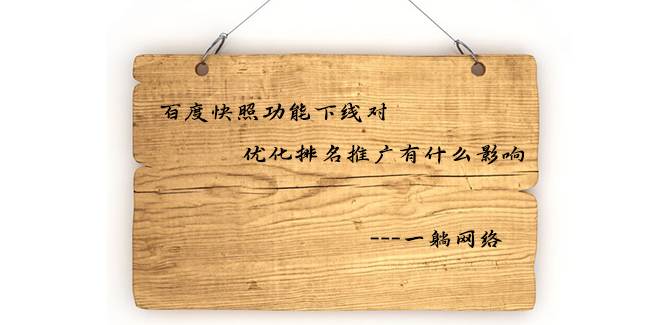 百度快照功能下线对
优化排名推广有什么影响
---一躺网络